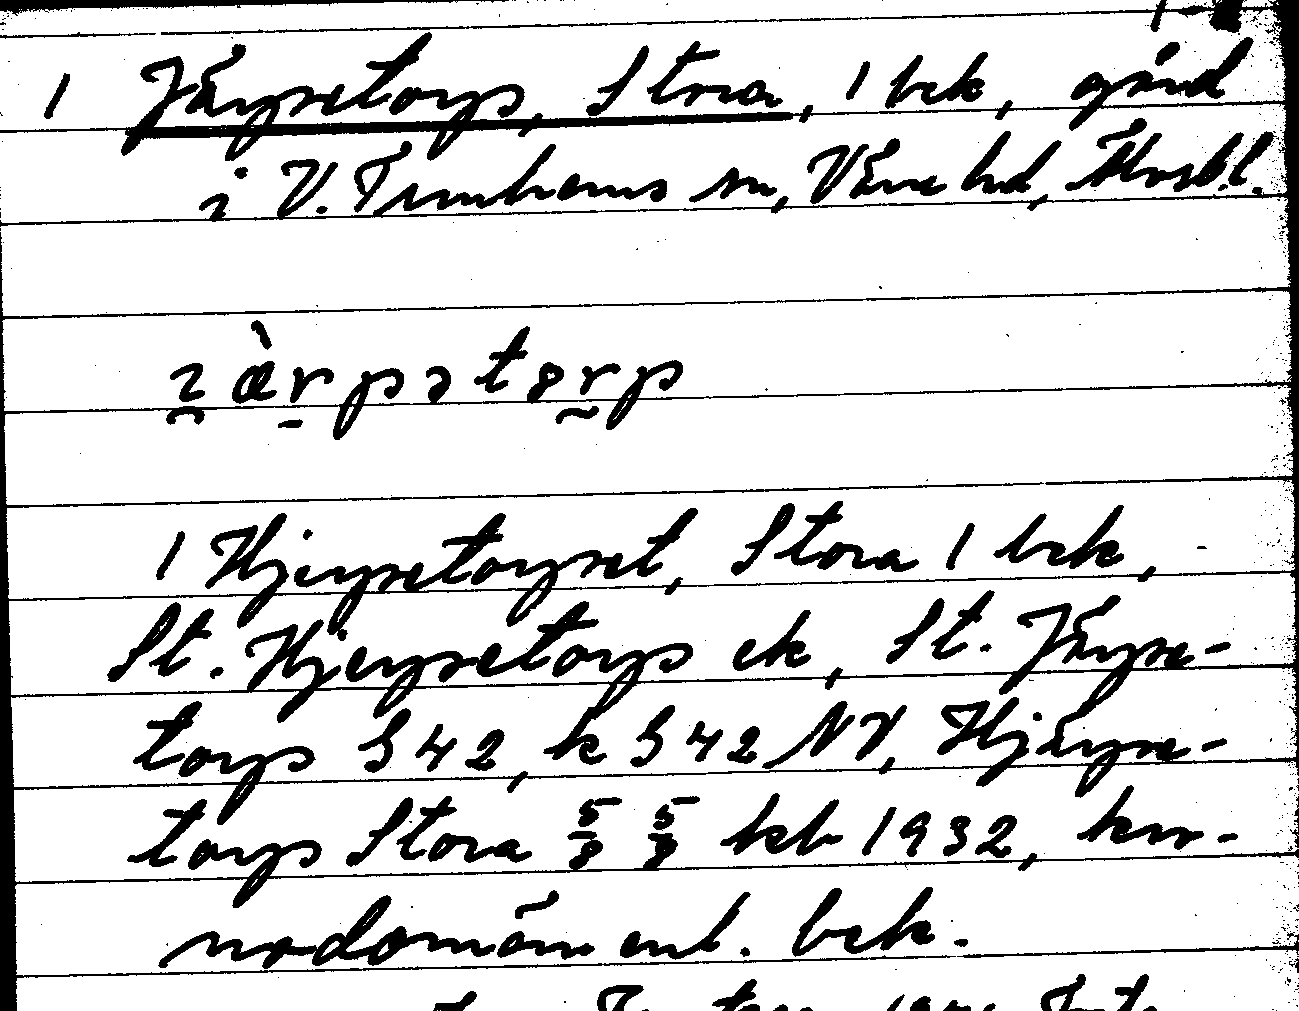 1 Järpetorp, Stora, 1 bek, gård
i V. Tunhems sn, Väne hd, Älvsbl.
ɪ̯æ̀rpətɷrp
1 Hjerpetorpet, Stora 1 bek,
St. Hjerpetorp ek, St. Järpe-
torp G 42, k G 42 NV, Hjärpe-
torp Stora 5/8 5/8 kb 1932, kro-
nodomän enl. bek.